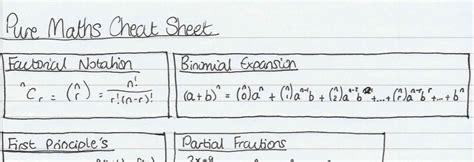 Pure Maths Cheat Sheet
Factorial Notation
ⁿCᵣ = (n r) = n! / r!(n-r)!
Binomial Expansion
(a+b)ⁿ = (n 0)aⁿ + (n 1)aⁿ⁻¹b + (n 2)aⁿ⁻²b² +...+ (n r)aⁿ⁻ʳbʳ +...+ bⁿ
First Principle's
Partial Fractions